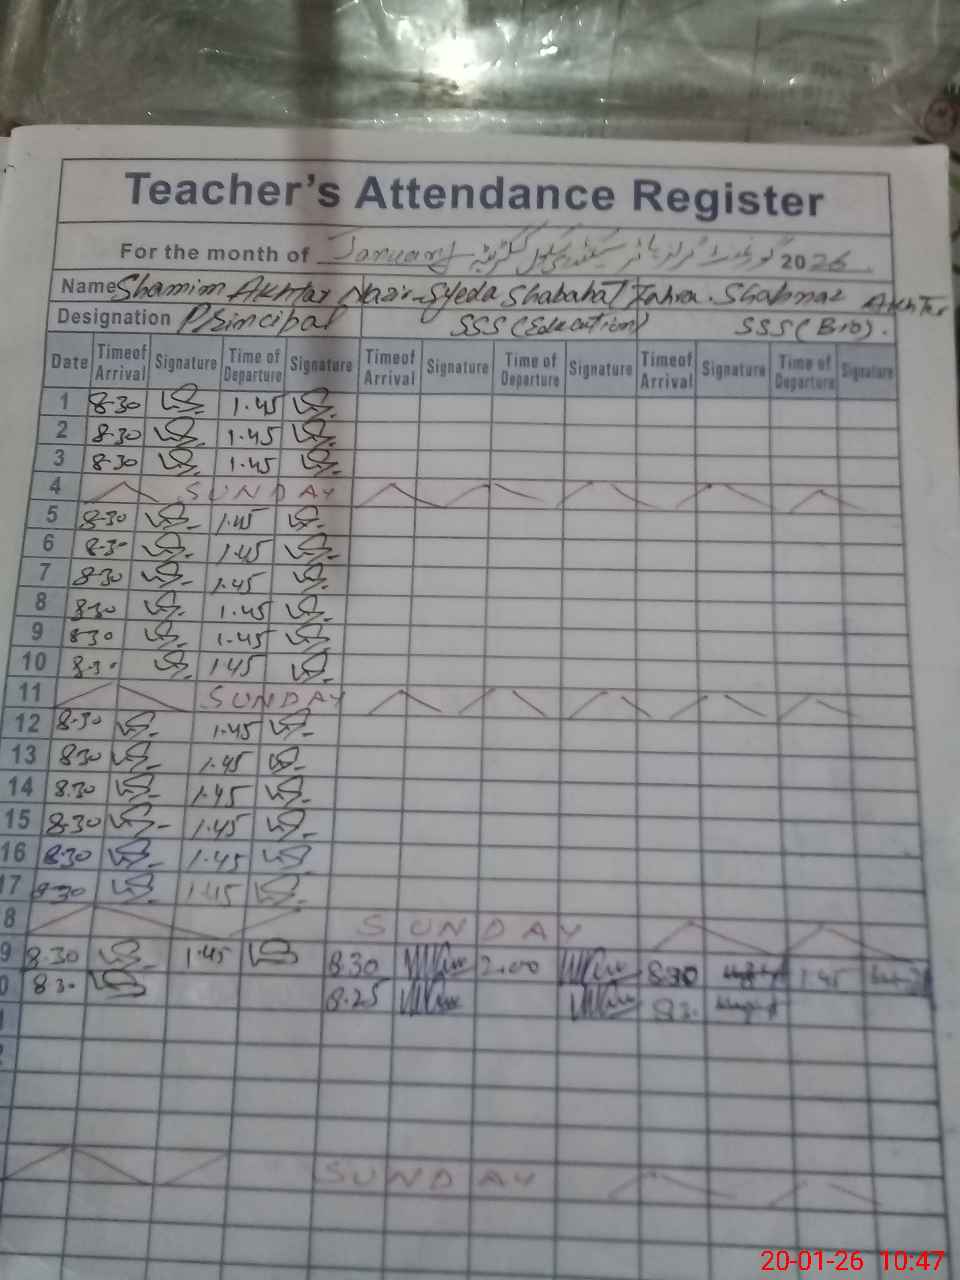 Teacher's Attendance Register
For the month of January گورنمنٹ گرلز ہائر سیکنڈری سکول 2026
Name Shamim Akhtar Nazir - Syeda Shabahat Zahra . Shabnaz Akhtar
Designation Principal SSS (Education) SSS (Bio) .
Date Timeof Arrival Signature Time of Departure Signature Timeof Arrival Signature Time of Departure Signature Timeof Arrival Signature Time of Departure Signature
1 8-30 1.45
2 8-30 1.45
3 8-30 1.45
4 SUNDAY
5 8-30 1.45
6 8-30 1.45
7 8-30 1.45
8 8-30 1.45
9 830 1.45
10 8-30 145
11 SUNDAY
12 8-30 1.45
13 830 1.45
14 8.30 1.45
15 8-30 1.45
16 8-30 1.45
17 8-30 1.45
8 SUNDAY
9 8.30 1.45 8.30 2.00 8.30 1.45
0 8.30 8.25
SUNDAY
20-01-26 10:47